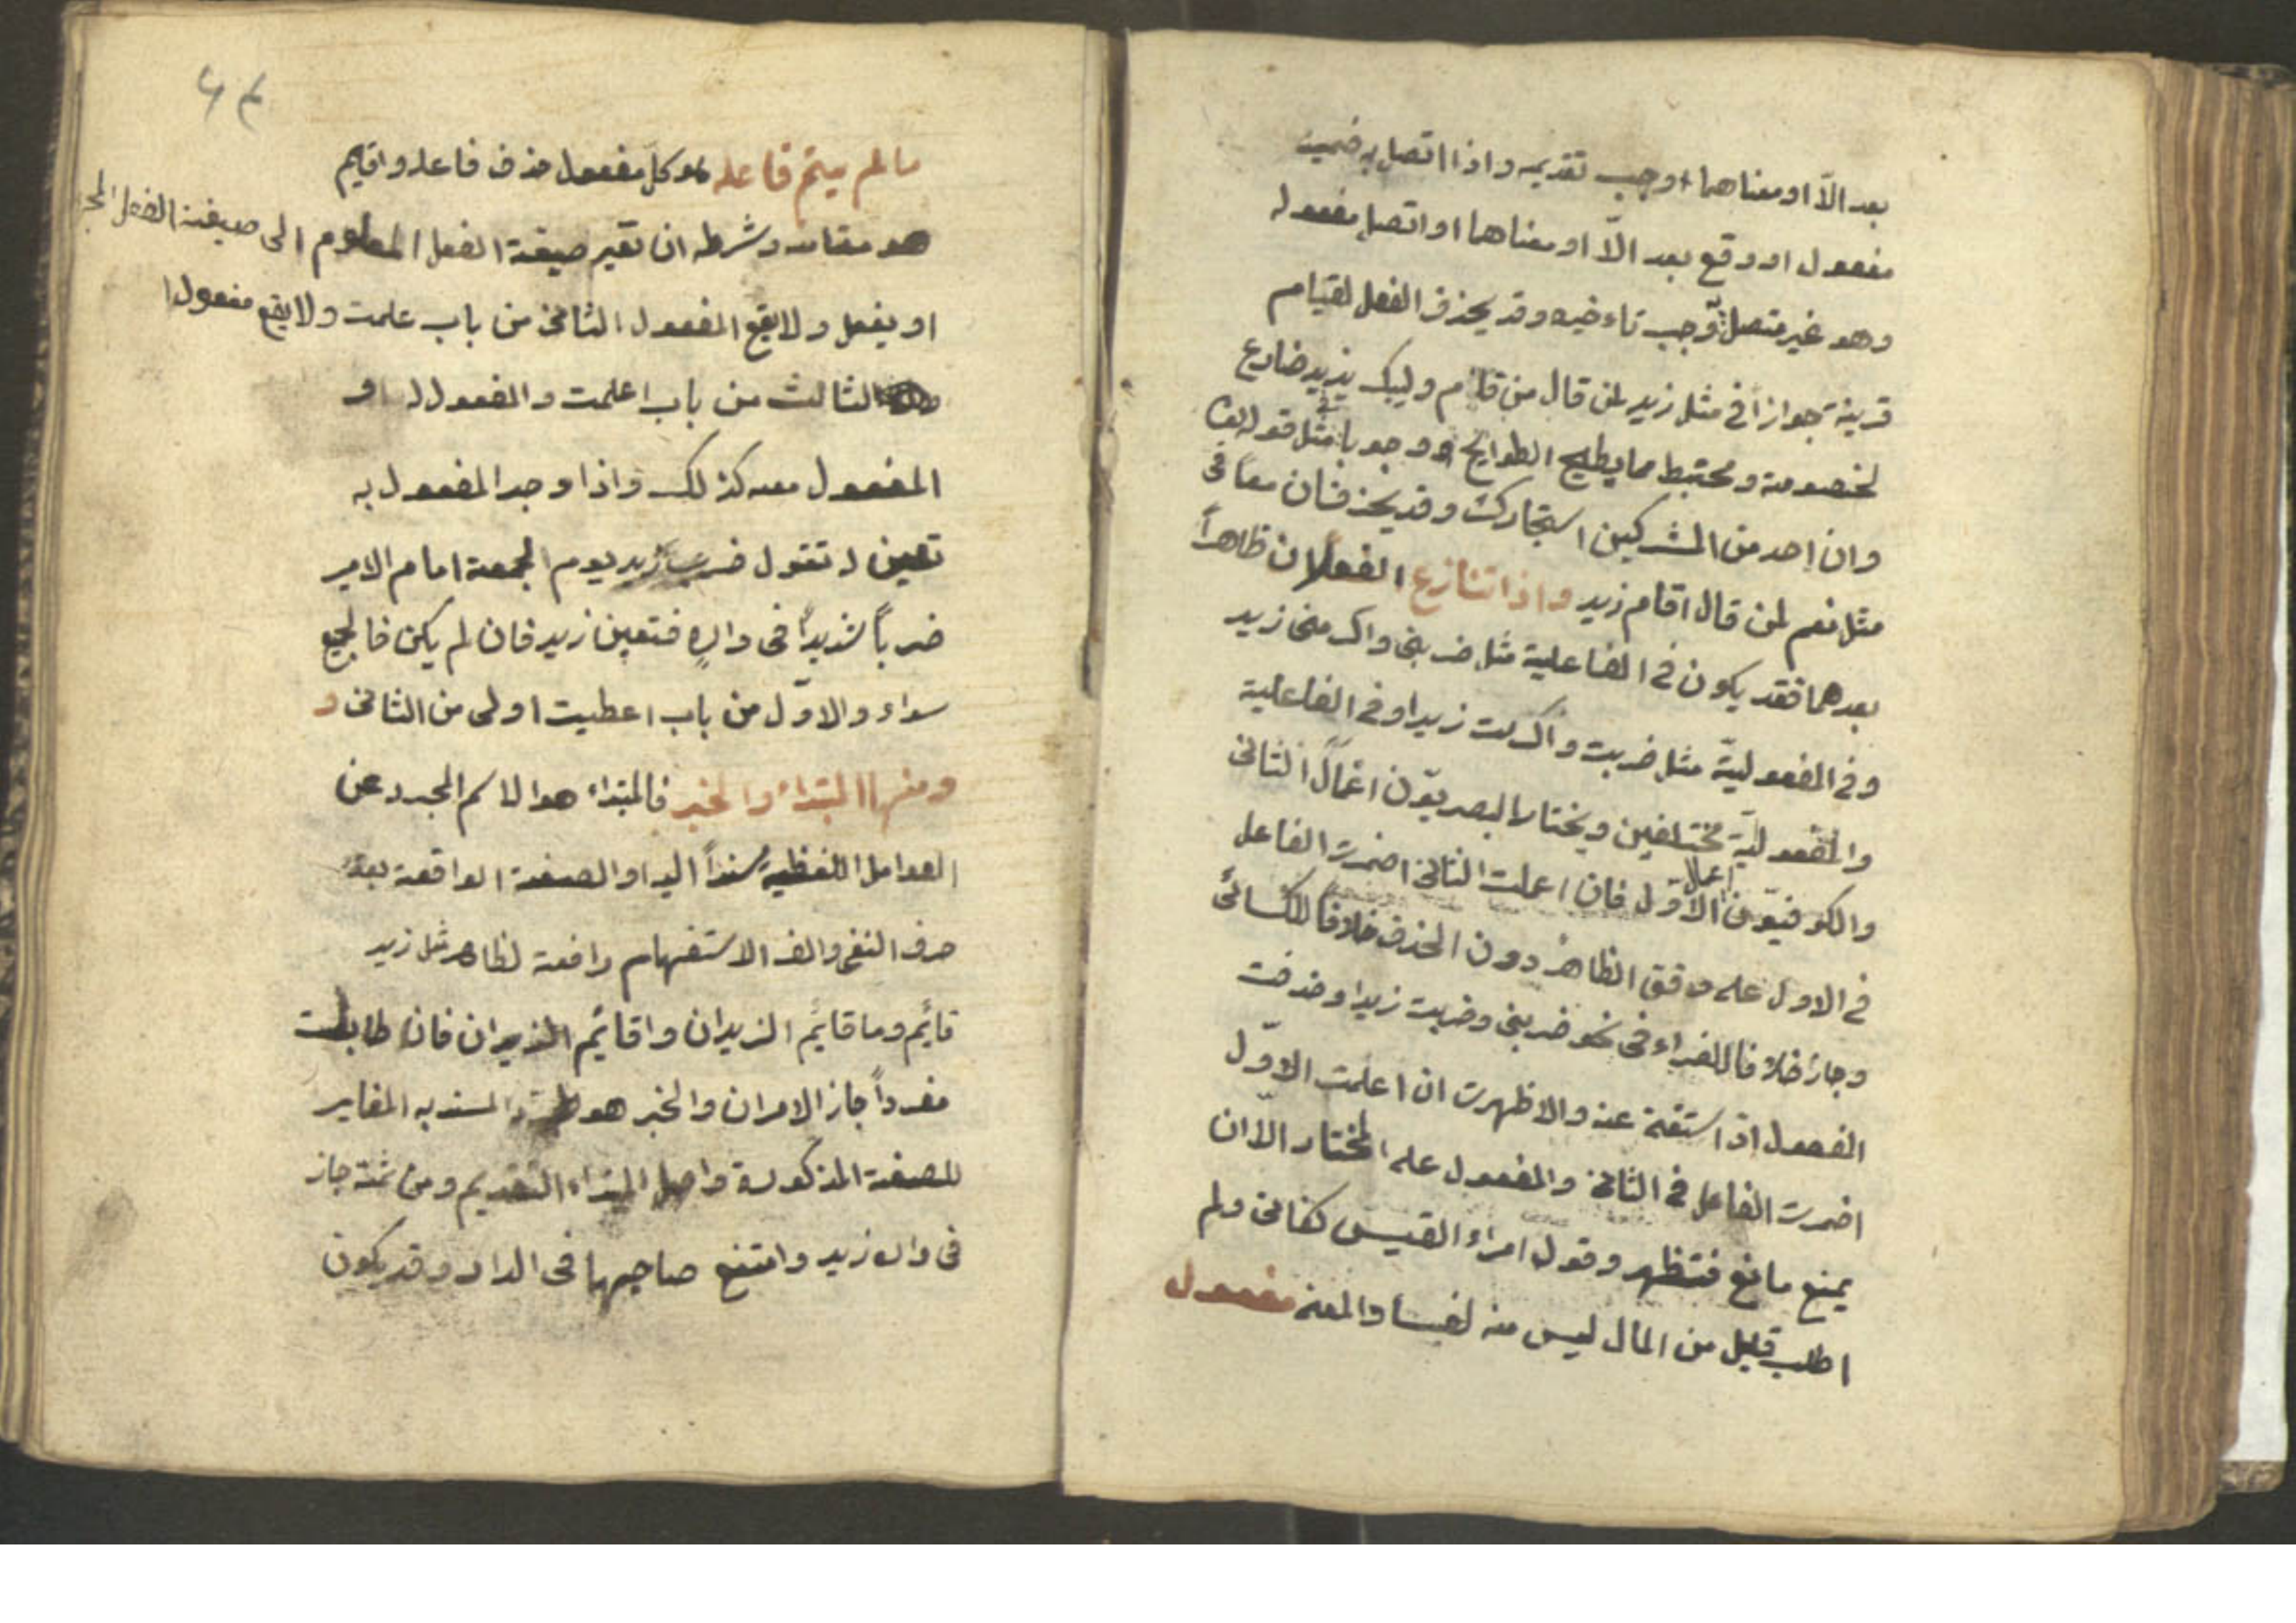 بعد الّا او معناهما وجب تقديمه واذا اتصل به ضمير
مفعول او وقع بعد الّا او معناهما او اتصل مفعوله
وهو غير متصل وجب تاءخيره وقد يحذف الفعل لقيام
قرينة جوازاً في مثل زيد لمن قال من قام وليبك يزيد ضارع
لخصومة ومختبط مما يطيح الطوايح ووجوبا في مثل قوله تعا
وان احد من المشركين استجارك وقد يحذفان معاً في
مثل نعم لمن قال اقام زيد واذا تنازع الفعلان ظاهراً
بعدهما فقد يكون في الفاعلية مثل ضربني واكرمني زيد
وفي المفعوليّة مثل ضربت واكرمت زيدا وفي الفاعلية
والمفعوليّة مختلفين ويختار البصريّون اعمال الثاني
والكوفيّون اعمال الاوّل فان اعملت الثاني اضمرت الفاعل
في الاول على وفق الظاهر دون الحذف خلافاً للكسائي
وجاز خلافا للفراء في نحو ضربني وضربت زيدا وحذفت
المفعول اذ استغنى عنه والا ظهرت ان اعلمت الاوّل
اضمرت الفاعل في الثاني والمفعول على المختار الّا ان
يمنع مانع فتظهر وقول امراء القيس كفاني ولم
اطلب قليل من المال ليس منه لفسا والمعنى مفعول
٤٢
مالم يتم فاعله هو كل مفعول حذف فاعله واقيم
هو مقامه وشرطه ان تغير صيغة الفعل المعلوم الى صيغة الفعل المج
او يفعل ولا يقع المفعول الثاني من باب علمت ولا يقع مفعول
الثالث من باب اعلمت والمفعول له و
المفعول معه كذلك واذا وجد المفعول به
تعين له تقول ضرب زيد يوم الجمعة امام الامير
ضرباً شديداً في داره فتعين زيد فان لم يكن فالجميع
سواء والاوّل من باب اعطيت اولى من الثاني و
ومنها المبتداء والخبر فالمبتداء هو الاسم المجرد عن
العوامل اللفظية مسنداً اليه او الصفة الواقعة بعد
حرف النفي والف الاستفهام رافعة لظاهر مثل زيد
قائم وما قائم الزيدان واقائم الزيدان فان طابقت
مفرداً جاز الامران والخبر هو المسند به المغاير
للصفة المذكورة واصل المبتداء التقديم ومن ثمة جاز
في داره زيد وامتنع صاحبها في الدار وقد يكون